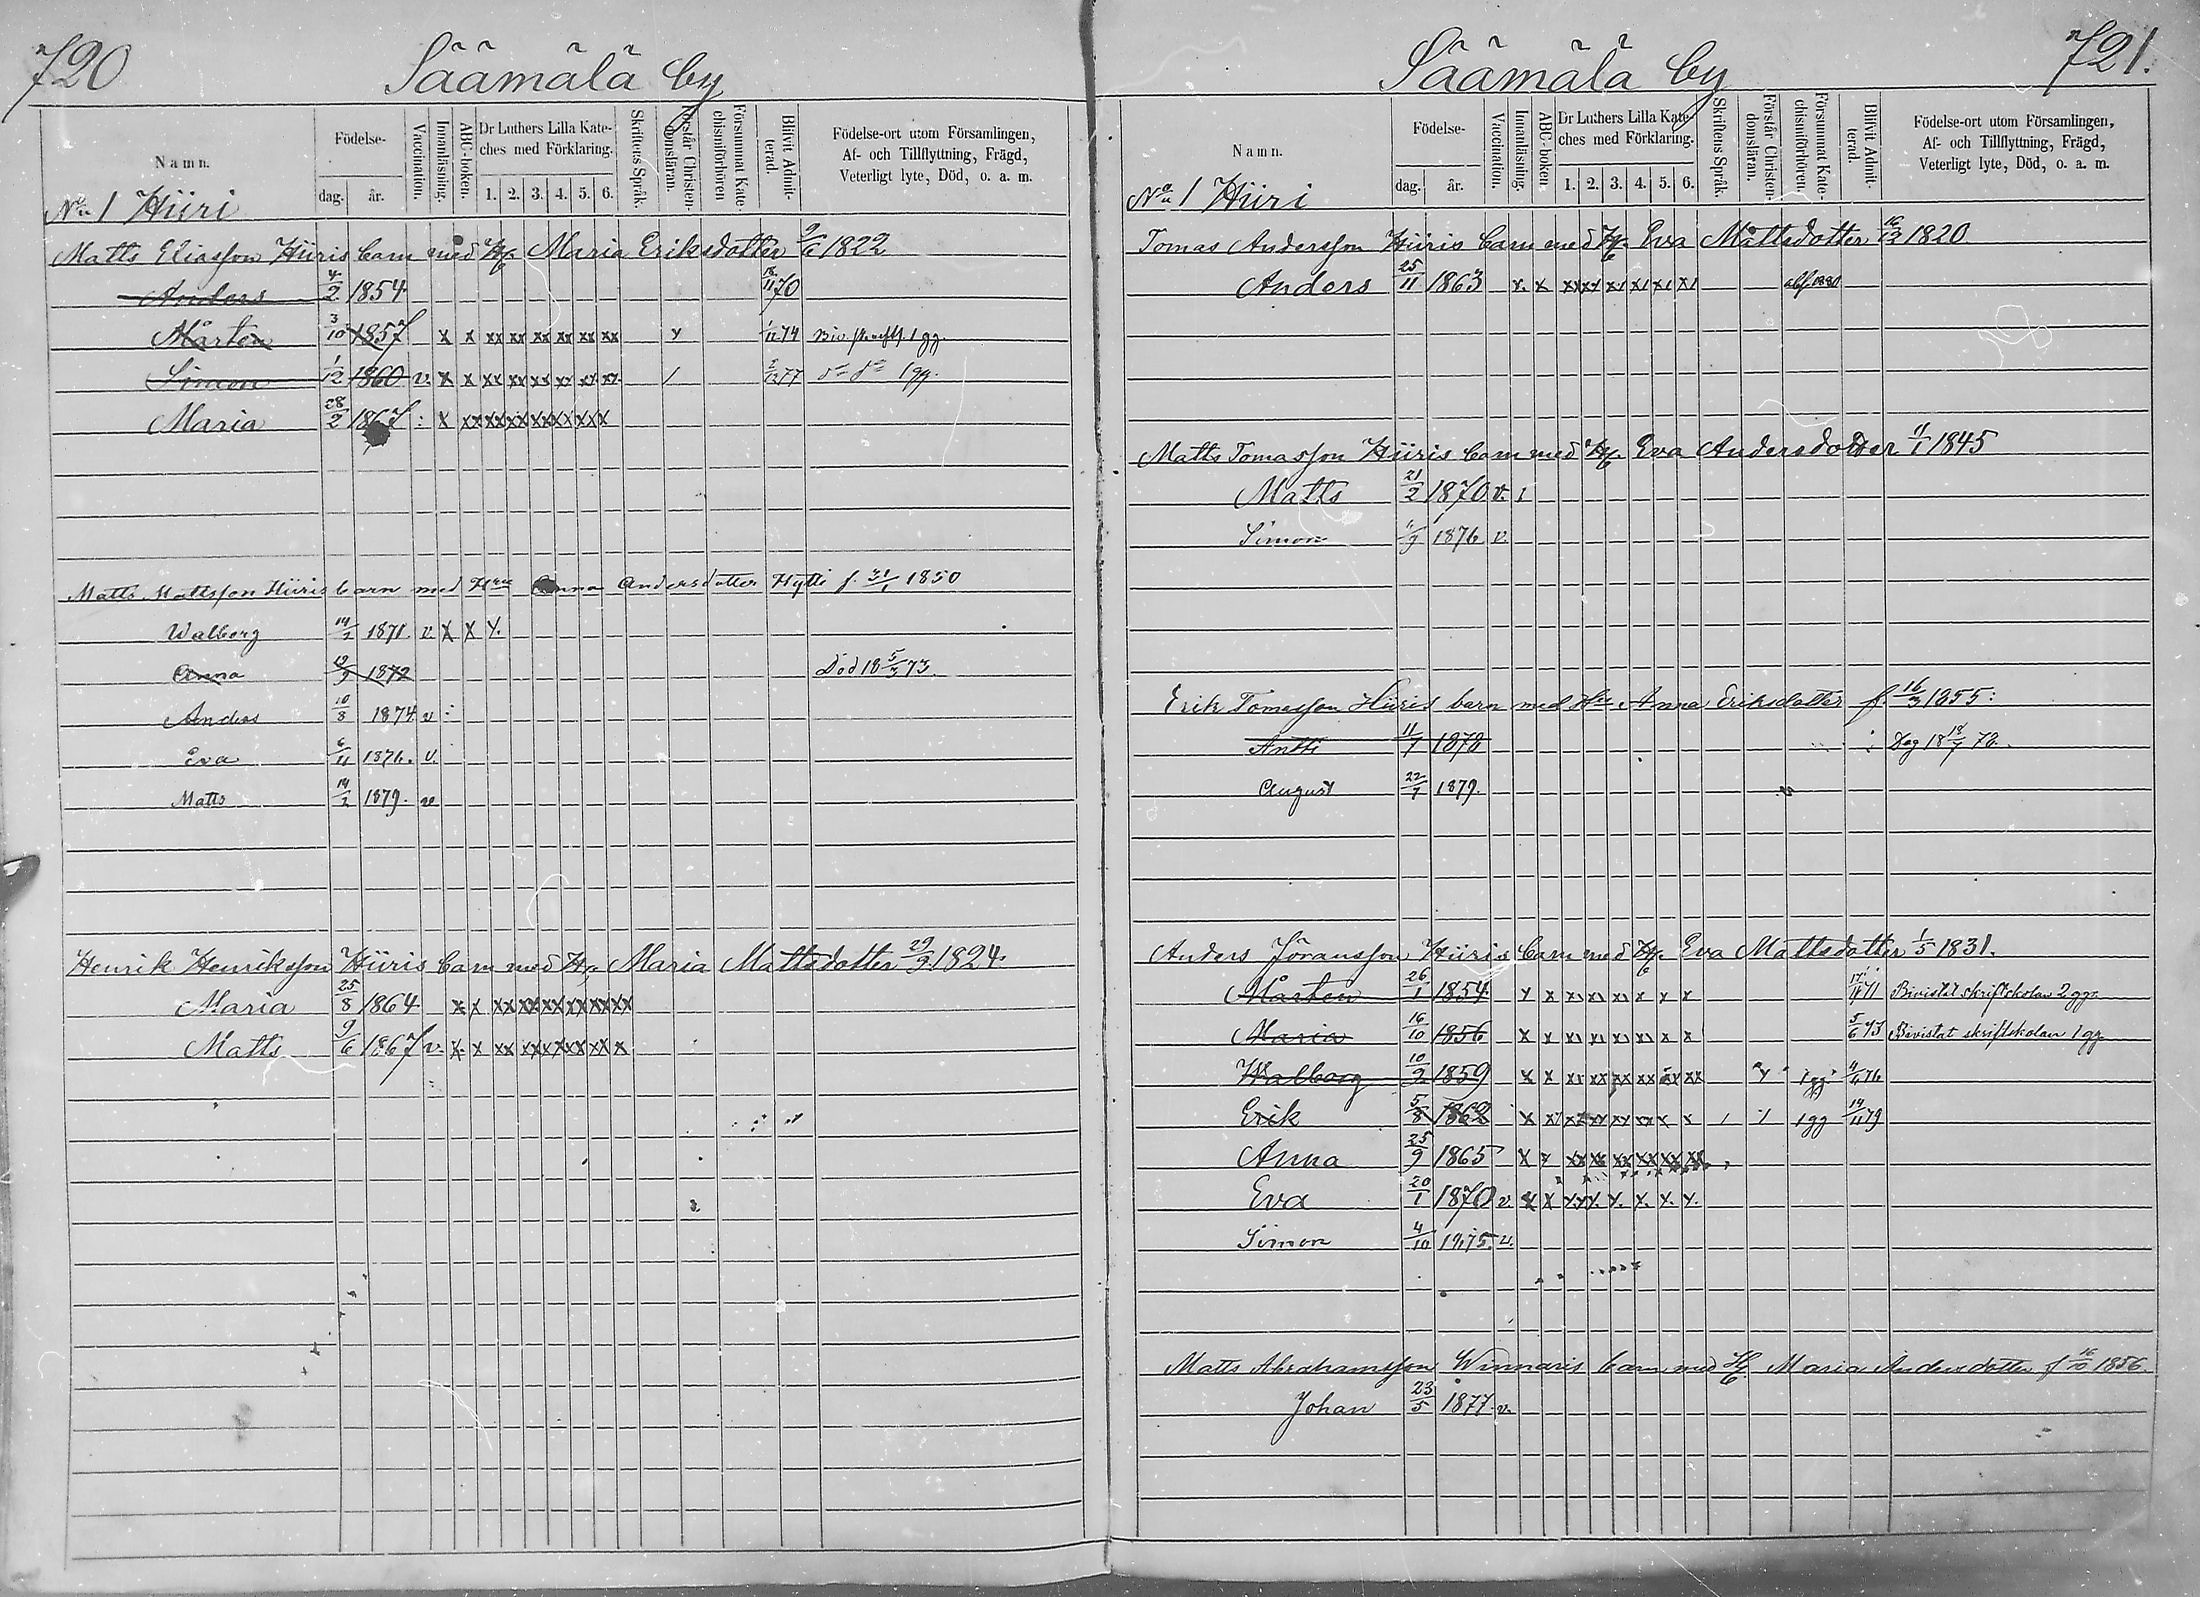 720
Säämälä by
Namn.
Födelse-
dag.
år.
Vaccination.
Innanläsning.
ABC-boken.
Dr Luthers Lilla Kate-
ches med Förklaring.
1. 2. 3. 4. 5. 6.
Skriftens Språk.
Förstår Christen-
domsläran.
Försummat Kate-
chismiförhören
Blifvit Admit-
terad.
Födelse-ort utom Församlingen,
Af- och Tillflyttning, Frägd,
Veterligt lyte, Död, o. a. m.
No 1 Hüri
Matts Eliasson Hüris barn med H. Maria Eriksdotter 9/6 1822
Anders 4/2 1854 18/11 70
Mårten 3/10 1857 x x xx xx xx xx xx xx x 1/12 74 1 gg.
Simon 1/12 1860 v. x x xx xx xx xx xx xx 1 77 1 gg.
Maria 28/2 1867 : x xx xx xx xx xx xx
Matts Mattsson Hüris barn med Hru Anna Andersdotter Hytti f. 21/1 1850
Walborg 14/2 1871 v. x x x.
Anna 19/9 1872 Död 18 5/3 73.
Anders 10/8 1874 v :
Eva 6/11 1876. v.
Matts 14/2 1879. v
Henrik Henriksson Hüris barn med H. Maria Mattsdotter 29/9 1824.
Maria 25/8 1864 x x xx xx xx xx xx xx
Matts 9/6 1867 v. x x xx xx xx xx xx x
721.
Säämälä by
Namn.
Födelse-
dag.
år.
Vaccination.
Innanläsning.
ABC-boken.
Dr Luthers Lilla Kate-
ches med Förklaring.
1. 2. 3. 4. 5. 6.
Skriftens Språk.
Förstår Christen-
domsläran.
Försummat Kate-
chismiförhören.
Blifvit Admit-
terad.
Födelse-ort utom Församlingen,
Af- och Tillflyttning, Frägd,
Veterligt lyte, Död, o. a. m.
No 1 Hüri
Tomas Andersson Hüris barn med H. Eva Mattsdotter 16/12 1820
Anders 25/11 1863 x. x xx xx x1 x1 x1 x1
Matts Tomasson Hüris barn med H. Eva Andersdotter 11/1 1845
Matts 21/2 1870 v. 1
Simon 1876 v.
Erik Tomasson Hüris barn med Hru Anna Eriksdotter f. 16/3 1855:
Antti 11/7 1878 Dog 18 18/7 78.
August 22/7 1879.
Anders Jöransson Hüris barn med H. Eva Mattsdotter 1/5 1831.
Mårten 26/1 1854 x x x x x x x x 71 Bivistat skriftskolan 2 gg.
Maria 16/10 1856 x x x x x x x x 5/6 73 Bivistat skriftskolan 1 gg
Walborg 10/9 1859 x x xx xx xx xx xx xx x 1 gg 76
Erik 5/8 1862 x x xx xx xx xx x x 1 1 1 gg 14/11 79
Anna 25/9 1865 x x xx xx xx xx xx xx
Eva 20/1 1870 v. x x xx x. x. x. x. x.
Simon 4/10 1875. v.
Matts Abrahamsson Winnaris barn med H. Maria Andersdotter f 16/10 1856.
Johan 23/5 1877. v.